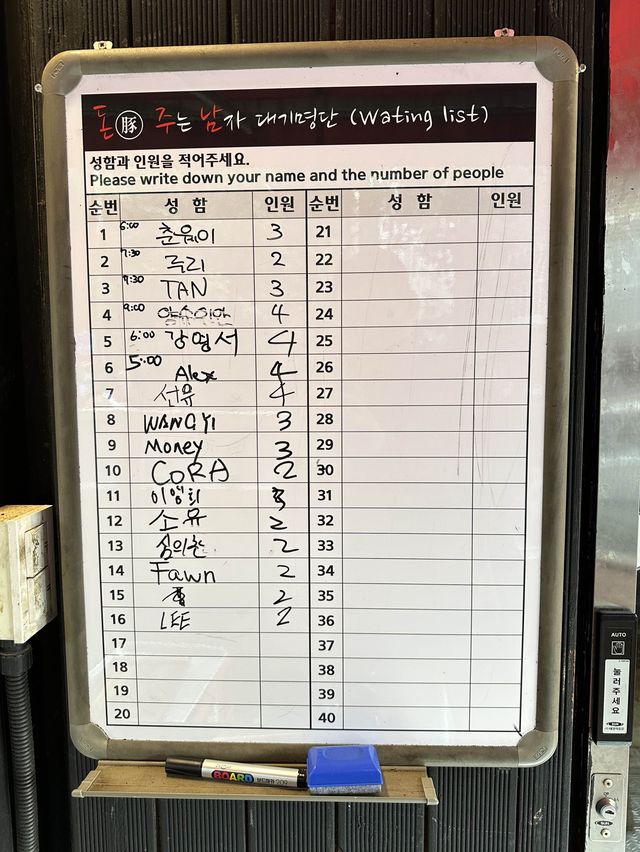 돈 豚 주는 남자 대기명단 (Wating list)
성함과 인원을 적어주세요.
Please write down your name and the number of people
순번 성 함 인원 순번 성 함 인원
1 6:00 춘원이 3 21
2 7:30 루리 2 22
3 9:30 TAN 3 23
4 9:00 4 24
5 6:00 강영서 4 25
6 5:00 Alex 4 26
7 선유 4 27
8 WANGYI 3 28
9 Money 3 29
10 CORA 2 30
11 이영희 31
12 소유 2 32
13 심의찬 2 33
14 Fawn 2 34
15 2 35
16 LEE 2 36
17 37
18 38
19 39
20 40
BOARD 보드마카 209
AUTO
눌러주세요